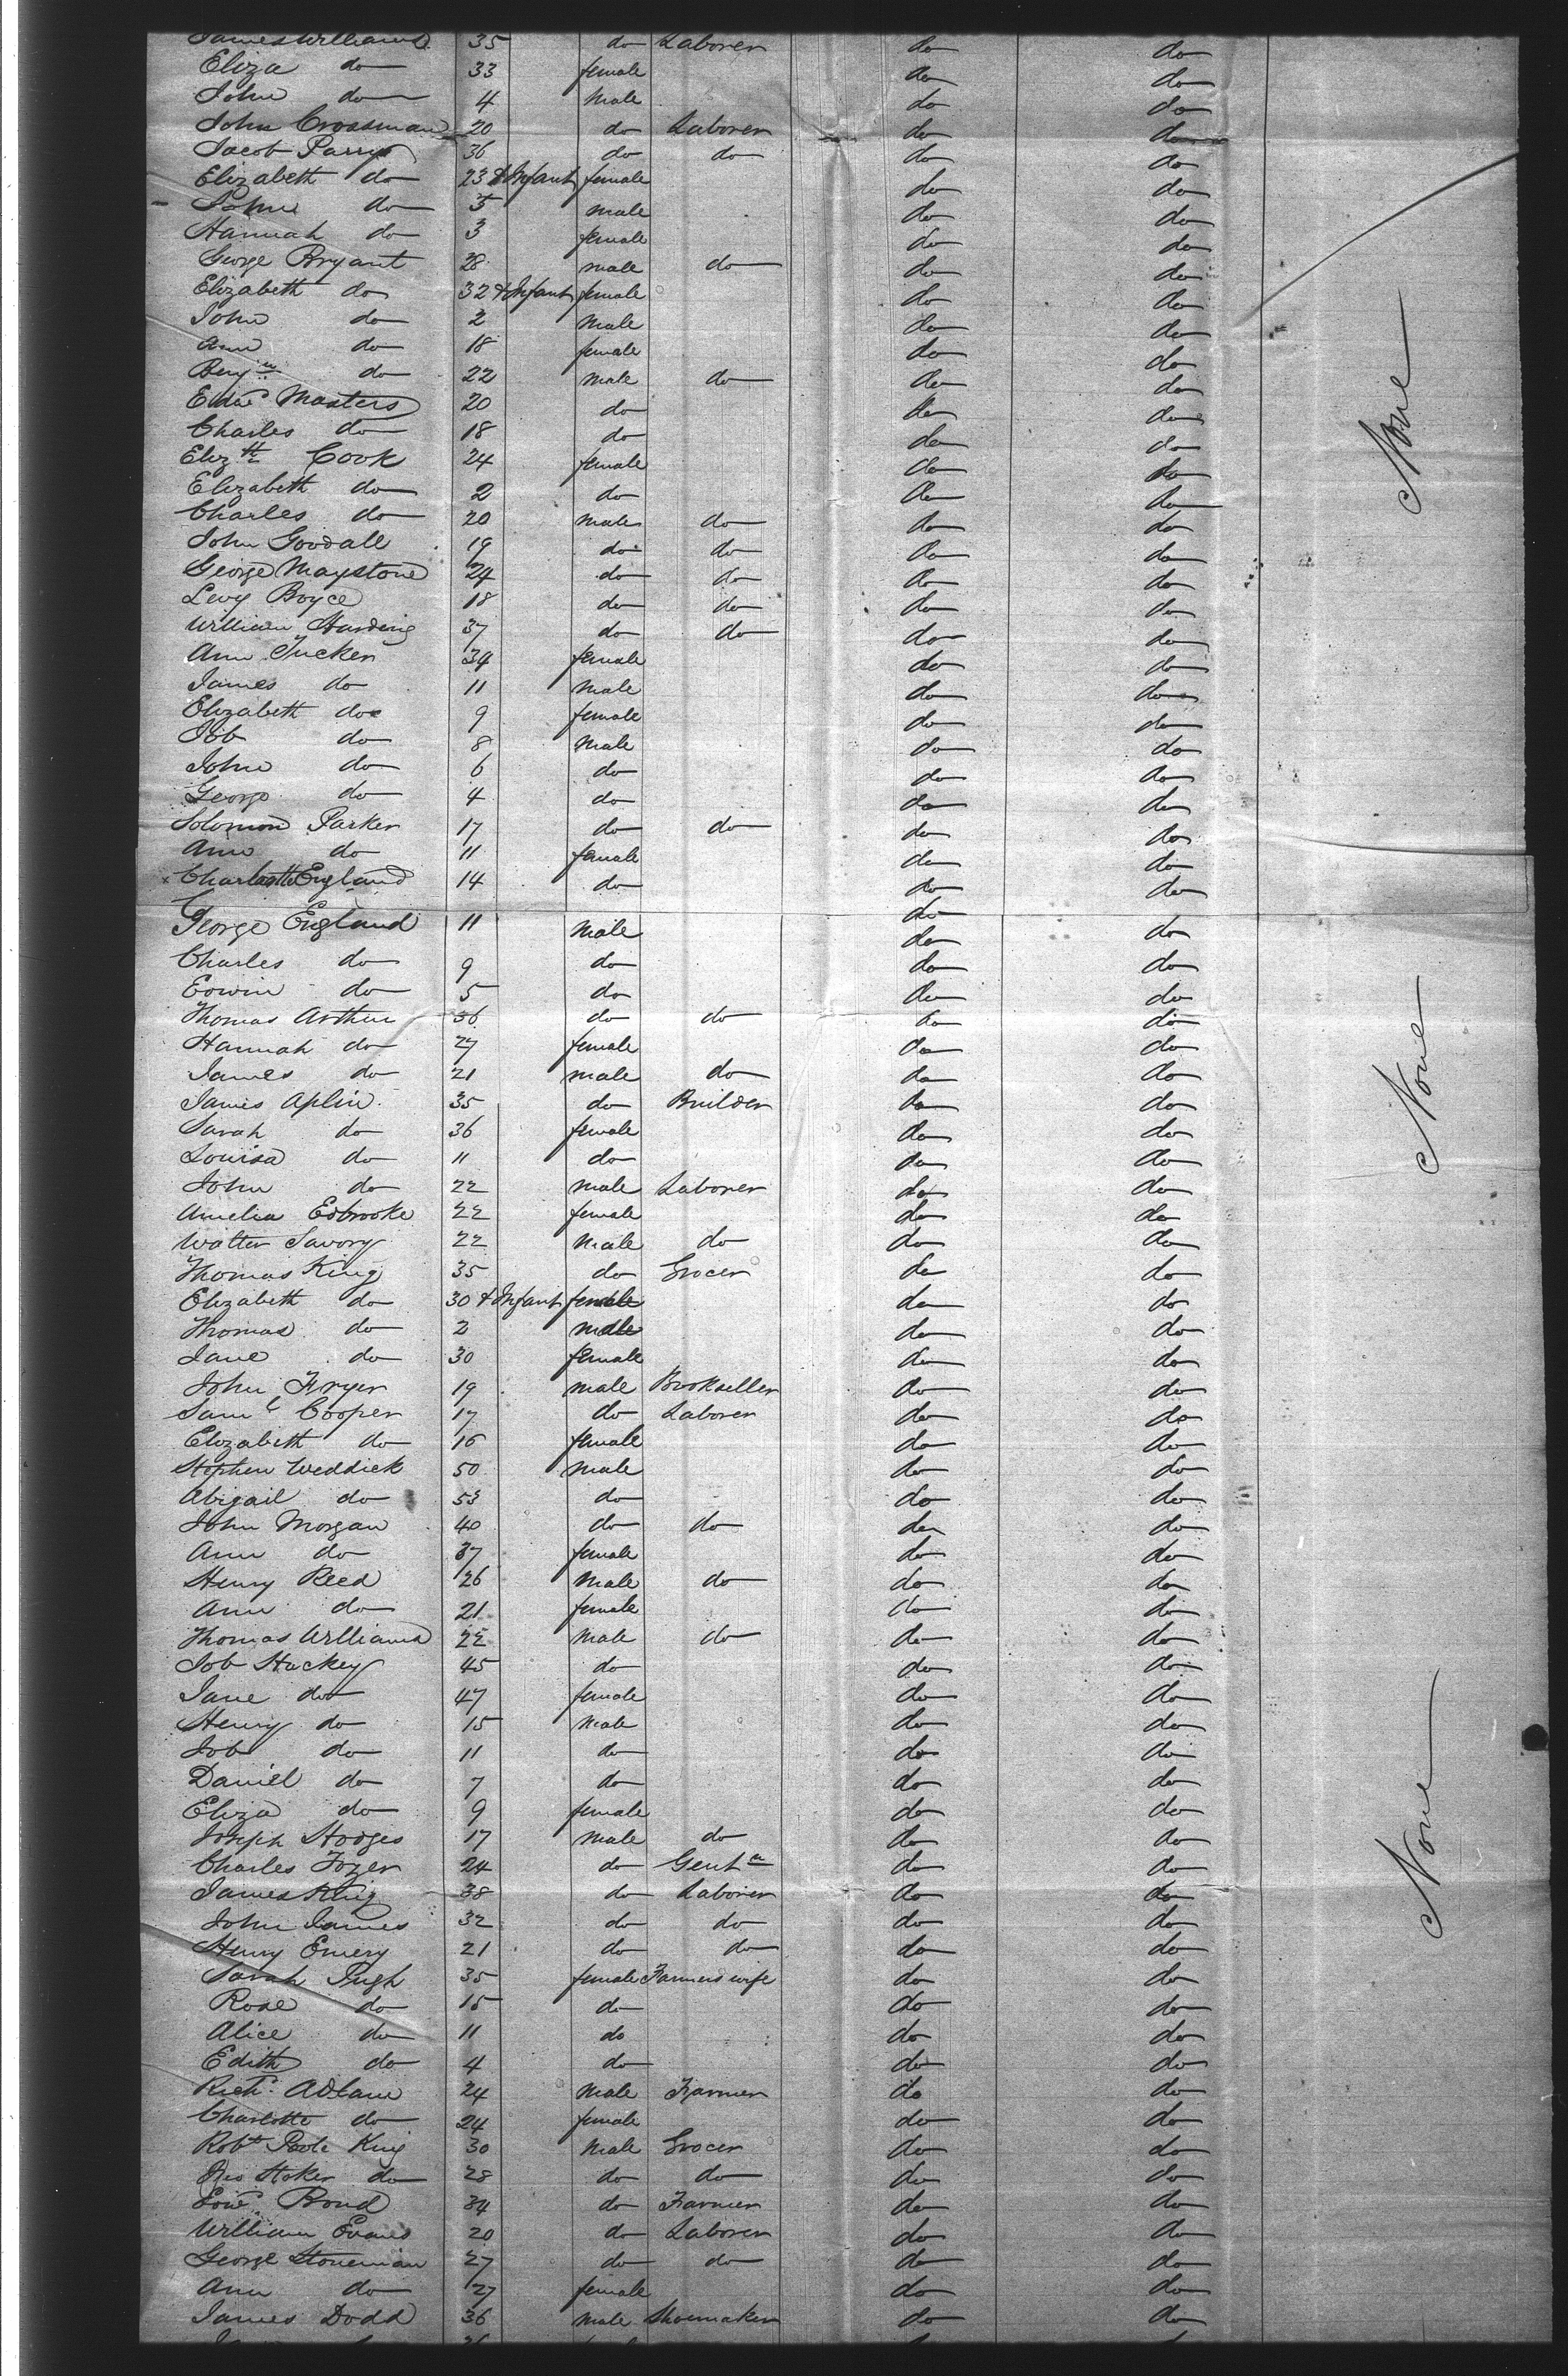 James Williams 35 do Laborer do do
Eliza do 33 female do do
John do 4 Male do do
John Crossman 20 do Laborer do do
Jacob Parry 36 do do do do
Elizabeth do 23 & Infant female do do
John do 5 male do do
Hannah do 3 female do do
George Bryant 28 male do do do
Elizabeth do 32 & Infant female do do
John do 2 Male do do
Ann do 18 female do do
Benjn do 22 male do do do
Edwd Masters 20 do do do
Charles do 18 do do do
Elizth Cook 24 female do do
Elizabeth do 2 do do do
Charles do 20 male do do do
John Goodall 19 do do do do
George Maystone 24 do do do do
Levy Boyce 18 do do do do
William Harding 37 do do do do
Ann Tucker 34 female do do
James do 11 Male do do
Elizabeth do 9 female do do
Job do 8 Male do do
John do 6 do do do
George do 4 do do do
Solomon Parker 17 do do do do
Ann do 11 female do do
Charlotte England 14 do do do
George England 11 Male do do
Charles do 9 do do do
Edwin do 5 do do do
Thomas Arthur 36 do do do do
Hannah do 27 female do do
James do 21 male do do do
James Aplin 35 do Builder do do
Sarah do 36 female do do
Louisa do 11 do do do
John do 22 male Laborer do do
Amelia Edbrooke 22 female do do
Walter Savory 22 Male do do do
Thomas King 35 do Grocer do do
Elizabeth do 30 & Infant female do do
Thomas do 2 male do do
Jane do 30 female do do
John Fryer 19 male Bookseller do do
Saml Cooper 17 do Laborer do do
Elizabeth do 16 female do do
Stephen Weddick 50 male do do
Abigail do 53 do do do
John Morgan 40 do do do do
Ann do 37 female do do
Henry Reed 26 Male do do do
Ann do 21 female do do
Thomas Williams 22 Male do do do
Job Huckey 45 do do do
Jane do 47 female do do
Henry do 15 Male do do
Job do 11 do do do
Daniel do 7 do do do
Eliza do 9 female do do
Joseph Hodges 17 Male do do do
Charles Tozer 24 do Gentn do do
James King 38 do Laborer do do
John James 32 do do do do
Henry Emery 21 do do do do
Sarah Pugh 35 female Farmers wife do do
Rose do 15 do do do
Alice do 11 do do do
Edith do 4 do do do
Richd Adlam 24 Male Farmer do do
Charlotte do 24 female do do
Robt Poole King 30 Male Grocer do do
Jno Stoker do 28 do do do do
Edwd Bond 34 do Farmer do do
William Evans 20 do Laborer do do
George Stoneman 27 do do do do
Ann do 27 female do do
James Dodd 36 Male Shoemaker do do
None
None
None